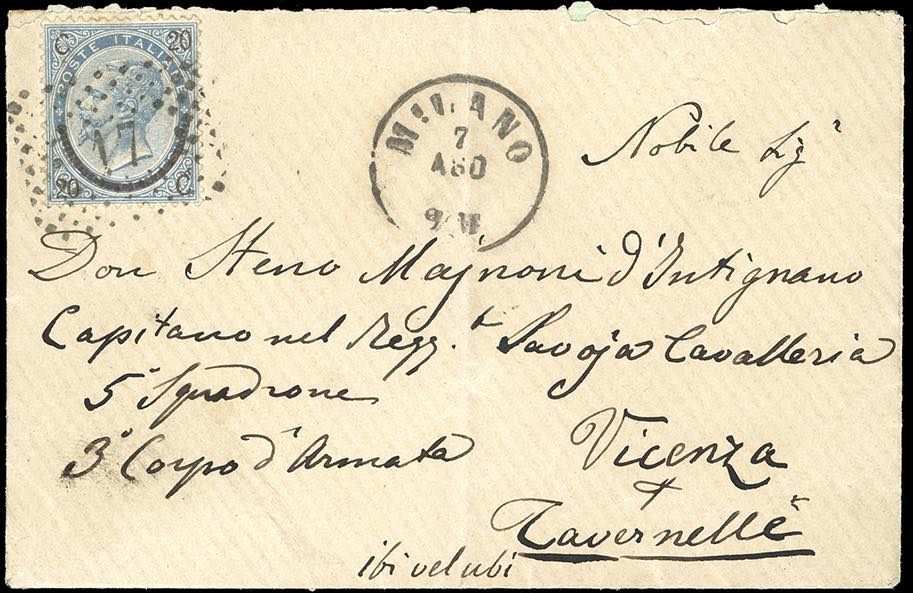 C 20
POSTE ITALIANE
17
20 C
MILANO
7
AGO
Nobile Sigʳ
Don Steno Majnoni d'Intignano
Capitano nel Regg.ᵗ Savoja Cavalleria
5° Squadrone
3° Corpo d'Armata
Vicenza
Tavernelle
ibi vel ubi